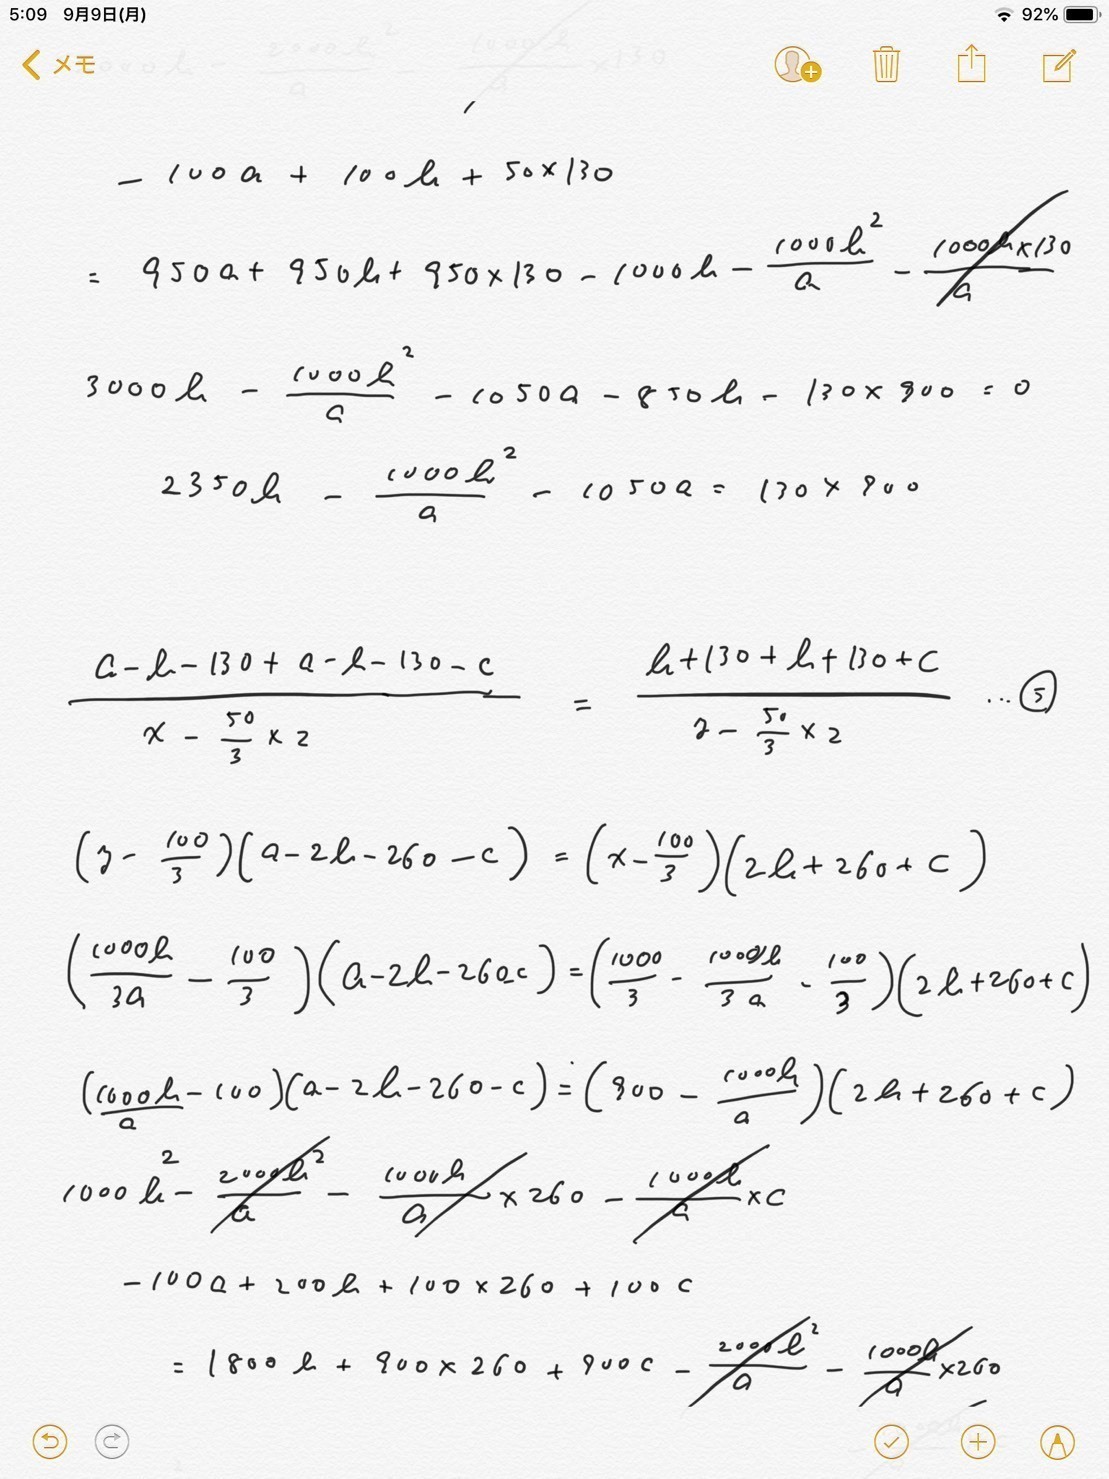 5:09 9月9日(月) 92%
メモ
- 100a + 100h + 50×130
= 950a + 950h + 950×130 - 1000h - 1000h²/a - 1000h×130/a
3000h - 1000h²/a - 1050a - 850h - 130×900 = 0
2350h - 1000h²/a - 1050a = 130×900
(a-h-130+a-h-130-c)/(x - 50/3 ×2) = (h+130+h+130+c)/(y - 50/3 ×2) … ⑤
(y - 100/3)(a-2h-260-c) = (x - 100/3)(2h+260+c)
(1000h/3a - 100/3)(a-2h-260-c) = (1000/3 - 1000h/3a - 100/3)(2h+260+c)
(1000h/a - 100)(a-2h-260-c) = (900 - 1000h/a)(2h+260+c)
1000h² - 2000h²/a - 1000h/a ×260 - 1000h/a ×c
-100a + 200h + 100×260 + 100c
= 1800h + 900×260 + 900c - 2000h²/a - 1000h/a ×260